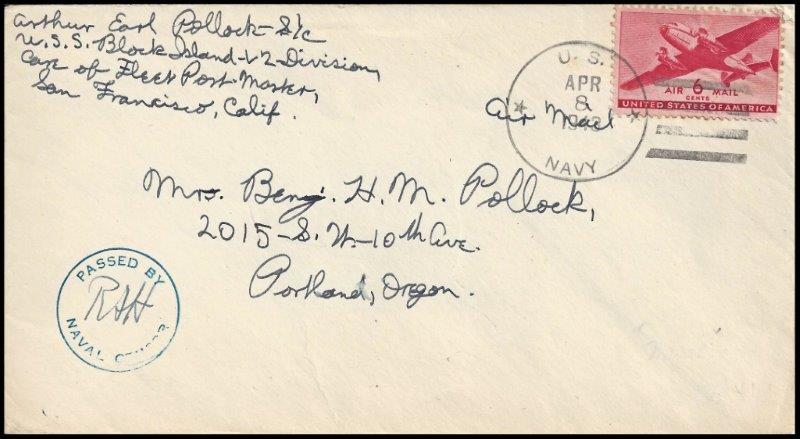 Arthur Earl Pollock-S1/c
U.S.S. Block Island-V-2-Division,
Care of Fleet Post Master,
San Francisco, Calif.
U. S.
APR
8
NAVY
AIR 6 MAIL
CENTS
UNITED STATES OF AMERICA
Air Mail
Mrs. Benj. H. M. Pollock,
2015-S.W-10th Ave.
Portland, Oregon.
PASSED BY
RAH
NAVAL CENSOR